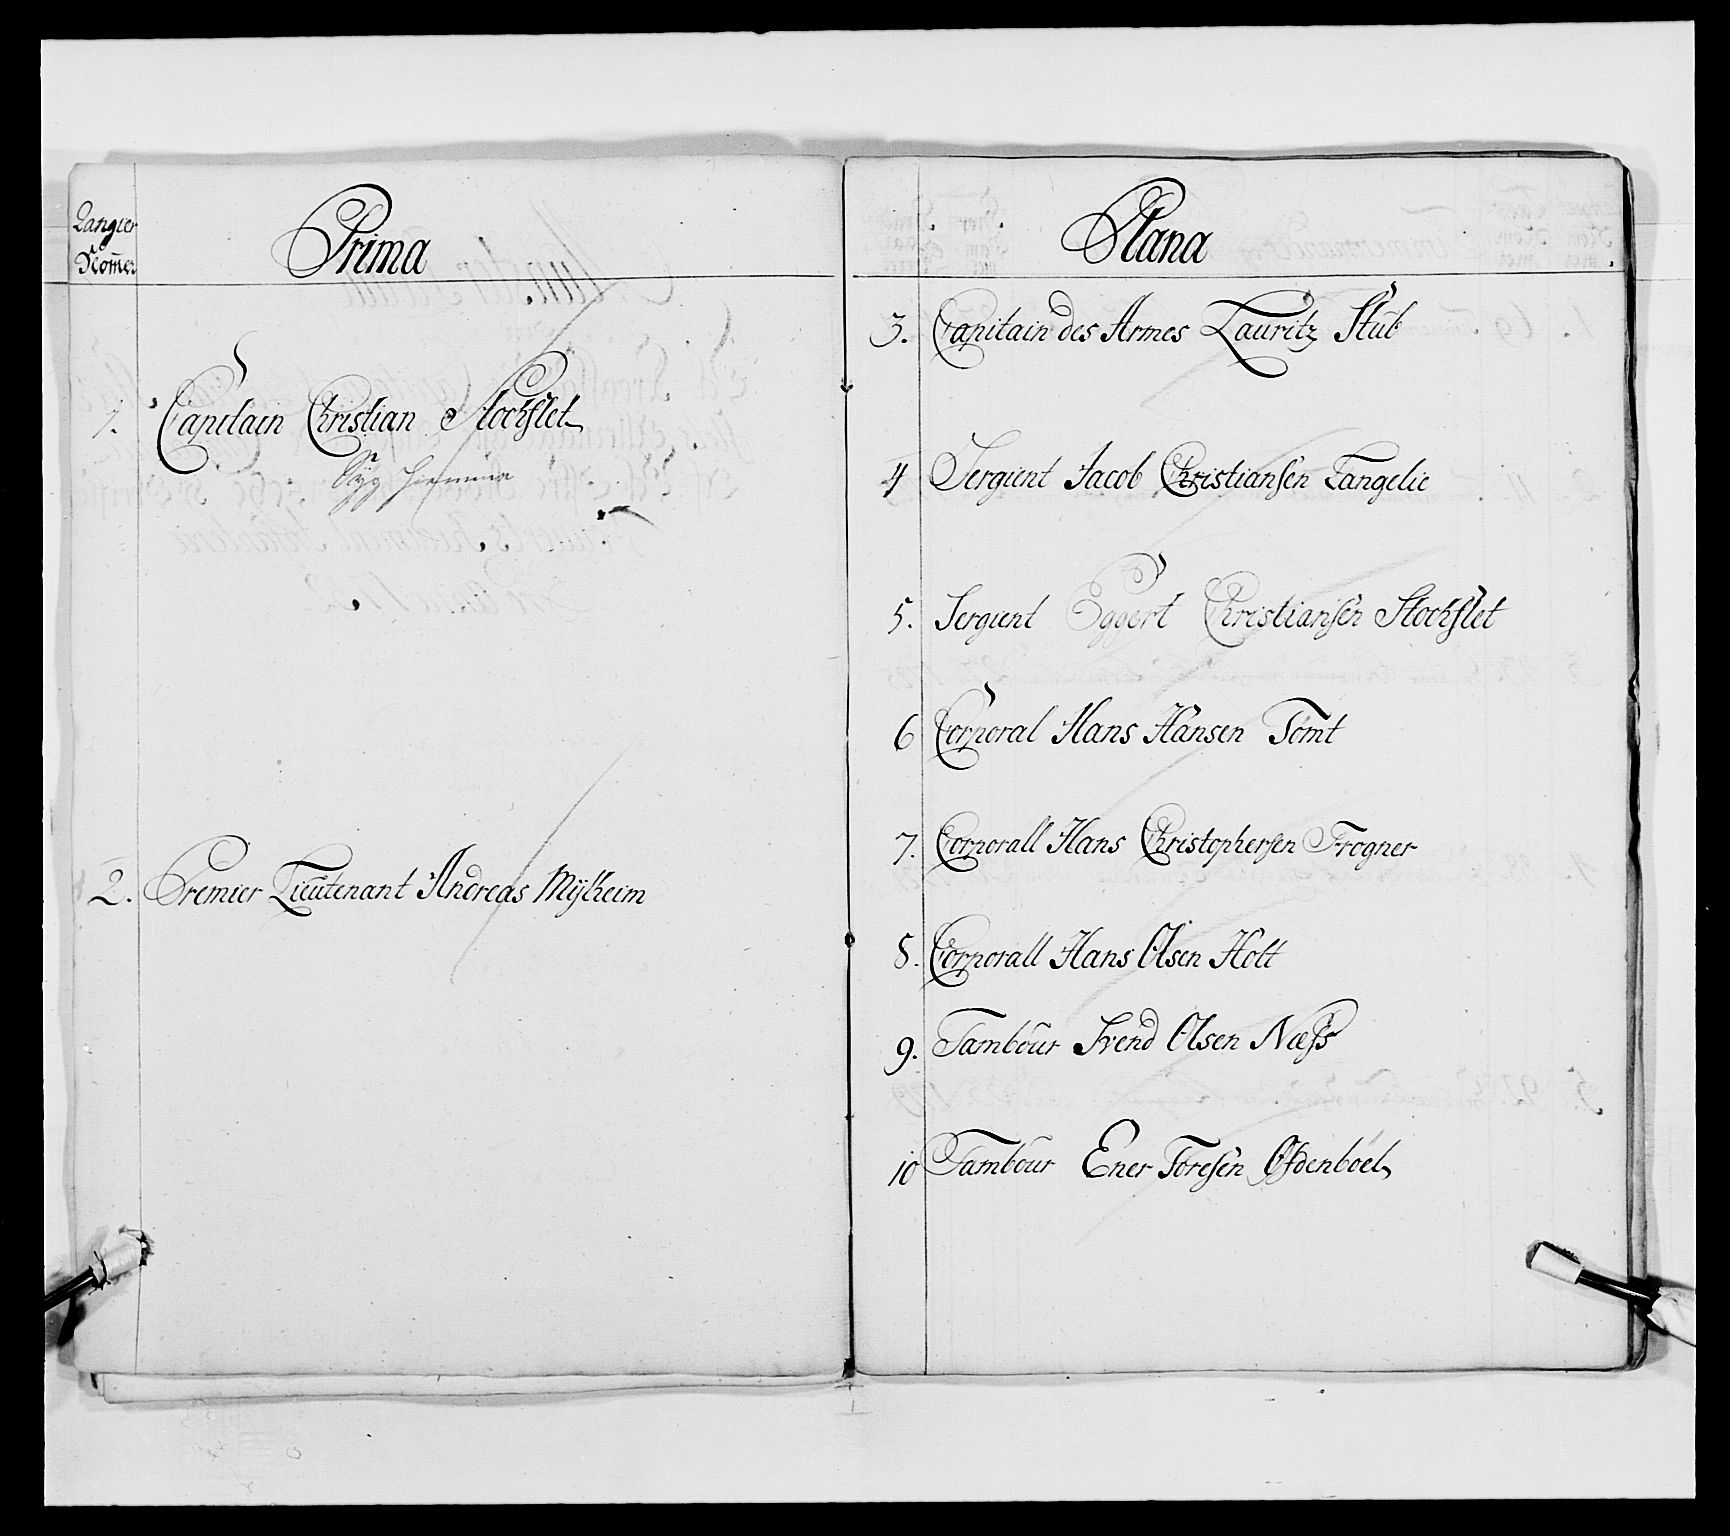 Rangier
Nom̄er
Prima
1. Capitain Christian Stochflet
Syg hiemme
2. Premier Lieutenant Andreas Mÿlheim
Plana
3. Capitain des Armes Lauritz Stub
4 Sergient Jacob Christiansen Tangelie
5. Sergient Eggert Christiansen Stochflet
6 Corporal Hans Hansen Tomt
7. Corporall Hans Christophersen Frogner
8. Corporall Hans Olsen Holt
9. Tambour Svend Olsen Næss
10 Tambour Ener Toresen